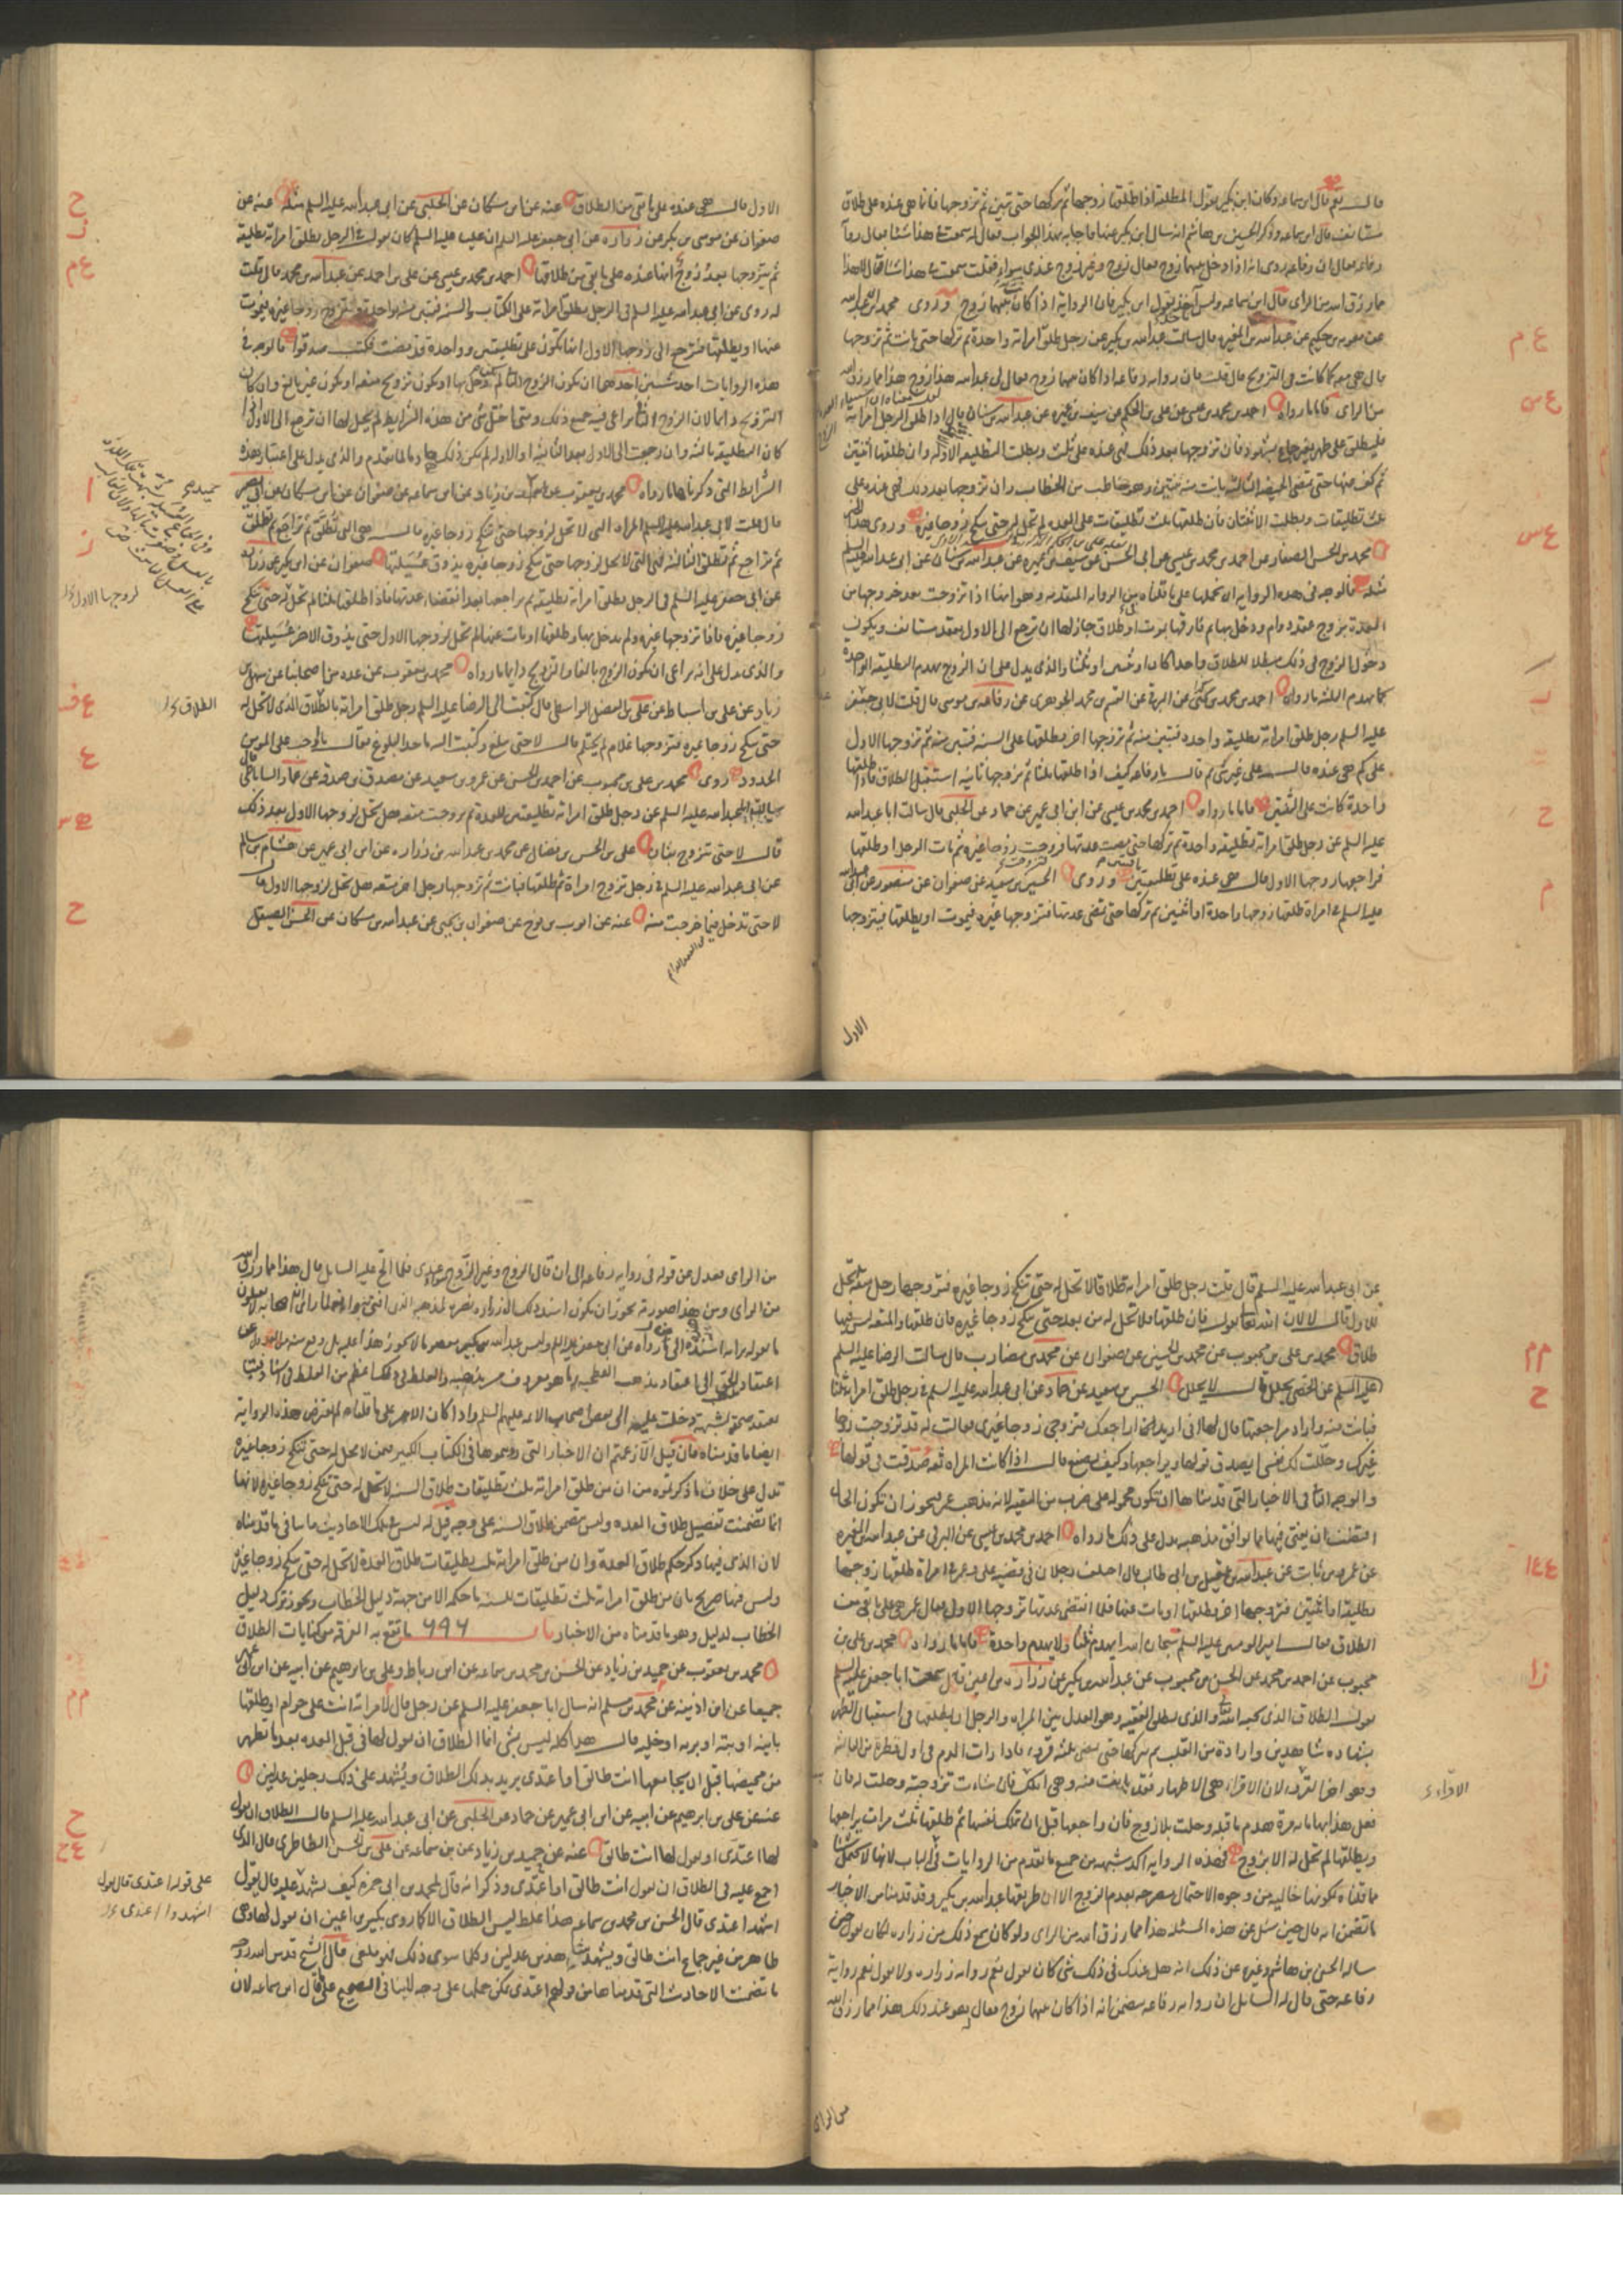 قال نعم قال ابن سماعه وكان ابن بكير يقول المطلقه اذا طلقها زوجها ثم تركها حتى تبين ثم تزوجها فانما هي عنده على طلاق
مستانف قال ابن سماعه وذكر الحسين بن هاشم انه سال ابن بكير عنها فاجابه بهذا الجواب فقال له سمعت في هذا شيئا فقال روايه
رفاعه فقال ان رفاعه روى انه اذا دخل بينهما زوج فقال زوج وغير زوج عندي سواء فقلت سمعت في هذا شيئا فقال لا هذا
مما رزق الله من الراى قال ابن سماعه وليس احد يقول بقول ابن بكير فان الروايه اذا كان بينهما زوج وروى محمد بن ابي عبدالله
عن معويه بن حكيم عن عبدالله بن المغيره قال سالت عبدالله بن بكير عن رجل طلق امراته واحدة ثم تركها حتى بانت ثم تزوجها
قال هي معه كما كانت في التزويج قال قلت فان روايه رفاعه اذا كان بينهما زوج فقال لي عبدالله هذا زوج هذا مما رزق الله
من الراى فاما ما رواه احمد بن محمد بن عيسى عن علي بن الحكم عن سيف بن عميره عن عبدالله بن سنان قال اذا طلق الرجل امراته
فليطلق على طهر بغير جماع بشهود فان تزوجها بعد ذلك فهي عنده على ثلث وبطلت التطليقه الاوله وان طلقها اثنتين
ثم كف عنها حتى تمضي الحيضه الثالثه بانت منه بثنتين وهو خاطب من الخطاب فان تزوجها بعد ذلك فهي عنده على
ثلث تطليقات وبطلت الاثنتان فان طلقها ثلث تطليقات على العده لم تحل له حتى تنكح زوجا غيره وروى هذا الخبر
محمد بن الحسن الصفار عن احمد بن محمد بن عيسى عن ابي الحسن عن سيف بن عميره عن عبدالله بن سنان عن ابي عبدالله عليه السلم
مثله فالوجه في هذه الروايه ان نحملها على ما قلناه من الروايه المتقدمه وهو انها اذا تزوجت بعد خروجها من
العدة بزوج عقد دوام ودخل بها ثم فارقها بموت او طلاق جاز لها ان ترجع الى الاول بعقد مستانف ويكون
دخول الزوج في ذلك مبطلا للطلاق واحدا كان او ثنتين او ثلثا والذى يدل على ان الزوج يهدم التطليقه الواحدة
كما يهدم الثلث ما رواه احمد بن محمد بن عيسى عن البرقي عن القسم بن محمد الجوهرى عن رفاعه بن موسى قال قلت لابي جعفر
عليه السلم رجل طلق امراته تطليقه واحده فتبين منه ثم تزوجها اخر فطلقها على السنه فتبين منه ثم تزوجها الاول
على كم هي عنده قال على غير شئ ثم قال يا رفاعه كيف اذا طلقها ثلثا ثم تزوجها ثانيه استقبل الطلاق فاذا طلقها
واحدة كانت على اثنتين فاما ما رواه احمد بن محمد بن عيسى عن ابن ابي عمير عن حماد عن الحلبي قال سالت ابا عبدالله
عليه السلم عن رجل طلق امراته تطليقه واحدة ثم تركها حتى مضت عدتها فتزوجت زوجا غيره ثم مات الرجل او طلقها
فراجعها زوجها الاول قال هي عنده على تطليقتين وروى الحسين بن سعيد عن صفوان عن منصور عن ابي عبدالله
عليه السلم في امراة طلقها زوجها واحدة او اثنتين ثم تركها حتى تمضى عدتها فتزوجها غيره فيموت او يطلقها فيتزوجها
الاول
الاول قال هي عنده على ما بقي من الطلاق عنه عن ابن مسكان عن الحلبي عن ابي عبدالله عليه السلم مثله عنه عن
صفوان عن موسى بن بكر عن زراره عن ابي جعفر عليه السلم ان عليا عليه السلم كان يقول في الرجل يطلق امراته تطليقه
ثم يتزوجها بعد زوج انها عنده على ما بقي من طلاقها احمد بن محمد بن عيسى عن علي بن احمد عن عبدالله بن محمد قال قلت
له روى عن ابي عبدالله عليه السلم في الرجل يطلق امراته على الكتاب والسنه فتبين منه بواحدة فتزوج زوجا غيره فيموت
عنها او يطلقها فترجع الى زوجها الاول انها تكون على تطليقتين وواحدة قد مضت فكتب صدقوا فالوجه في
هذه الروايات احد شيئين احدهما ان يكون الزوج الثاني لم يدخل بها او يكون تزويج متعه او يكون غير بالغ وان كان
التزويج دائما لان الزوج انما يراعى فيه جميع ذلك ومتى اختل شئ من هذه الشرايط لم يحل لها ان ترجع الى الاول اذا
كان التطليقه ثالثه وان رجعت الى الاول بعد الثانيه او الاوله لم يكن ذلك هادما لما تقدم والذى يدل على اعتبار هذه
الشرايط التي ذكرناها ما رواه محمد بن يعقوب عن حميد بن زياد عن ابن سماعه عن صفوان عن ابن مسكان عن ابي بصير
قال قلت لابي عبدالله عليه السلم المراه التي لا تحل لزوجها حتى تنكح زوجا غيره قال هي التي تطلق ثم تراجع ثم تطلق
ثم تراجع ثم تطلق الثالثه فهي التي لا تحل لزوجها حتى تنكح زوجا غيره ويذوق عسيلتها صفوان عن ابن بكير عن زراره
عن ابي جعفر عليه السلم في الرجل يطلق امراته تطليقه ثم يراجعها بعد انقضاء عدتها فاذا طلقها ثلثا لم تحل له حتى تنكح
زوجا غيره فاذا تزوجها غيره ولم يدخل بها وطلقها او مات عنها لم تحل لزوجها الاول حتى يذوق الاخر عسيلتها
والذى يدل على انه يراعى ان يكون الزوج بالغا والتزويج دائما ما رواه محمد بن يعقوب عن عدة من اصحابنا عن سهل بن
زياد عن علي بن اسباط عن علي بن الفضل الواسطي قال كتبت الى الرضا عليه السلم رجل طلق امراته بالطلاق الذى لا تحل له
حتى تنكح زوجا غيره فتزوجها غلام لم يحتلم قال لا حتى يبلغ وكتبت اليه ما حد البلوغ فقال ما اوجب على المومنين
الحدود روى محمد بن علي بن محبوب عن احمد بن الحسن عن عمرو بن سعيد عن مصدق بن صدقه عن عمار الساباطي
ابا عبدالله عليه السلم عن رجل طلق امراته تطليقتين للعده ثم تزوجت متعه هل تحل لزوجها الاول بعد ذلك
قال لا حتى تزوج بتات علي بن الحسن بن فضال عن محمد بن عبدالله بن زراره عن ابن ابي عمير عن هشام بن سالم
عن ابي عبدالله عليه السلم في رجل تزوج امراة ثم طلقها فبانت ثم تزوجها رجل اخر متعه هل تحل لزوجها الاول قال
لا حتى تدخل فيما خرجت منه عنه عن ايوب بن نوح عن صفوان بن يحيى عن عبدالله بن مسكان عن الحسن الصيقل
عن ابي عبدالله عليه السلم قال قلت رجل طلق امراته طلاقا لا تحل له حتى تنكح زوجا غيره فتزوجها رجل متعه اتحل
للاول قال لا لان الله تعالى يقول فان طلقها فلا تحل له من بعد حتى تنكح زوجا غيره فان طلقها والمتعه ليس فيها
طلاق محمد بن علي بن محبوب عن محمد بن الحسين عن صفوان عن محمد بن مضارب قال سالت الرضا عليه السلم
عن الخصي يحلل قال لا يحلل الحسين بن سعيد عن حماد عن ابي عبدالله عليه السلم في رجل طلق امراته ثلثا
فبانت منه واراد مراجعتها قال لها اني اريد ان اراجعك فتزوجي زوجا غيرى فقالت له قد تزوجت زوجا
غيرك وحللت لك نفسى ايصدق قولها ويراجعها وكيف يصنع قال اذا كانت المراه ثقه صدقت في قولها
والوجه الثاني في الاخبار التي قدمناها ان تكون محموله على ضرب من التقيه لانه مذهب عمر فيجوز ان تكون الحال
اقتضت ان يفتي فيها بما يوافق مذهبه يدل على ذلك ما رواه احمد بن محمد بن عيسى عن البرقي عن عبدالله بن المغيره
عن عمرو بن ثابت عن عبدالله بن عقيل بن ابي طالب قال اختلف رجلان في قضيه على وعمر في امراة طلقها زوجها
تطليقه او اثنتين فتزوجها اخر فطلقها او مات عنها فلما انقضت عدتها تزوجها الاول فقال عمر هي على ما بقي من
الطلاق فقال امير المومنين عليه السلم سبحان الله ايهدم ثلثا ولا يهدم واحدة فاما ما رواه محمد بن علي بن
محبوب عن احمد بن محمد عن الحسن بن محبوب عن عبدالله بن بكير عن زراره بن اعين قال سمعت ابا جعفر عليه السلم
يقول الطلاق الذى يحبه الله والذى يطلق الفقيه وهو العدل بين المراه والرجل ان يطلقها في استقبال الطهر
بشهاده شاهدين وارادة من القلب ثم يتركها حتى تمضى ثلثه قروء فاذا رات الدم في اول قطرة من الثالثه
وهو اخر القرء لان الاقراء هي الاطهار فقد بانت منه وهي املك بنفسها فان شاءت تزوجته وحلت له فان
فعل هذا بها مائه مرة هدم ما قبله وحلت بلا زوج فان راجعها قبل ان تملك نفسها ثم طلقها ثلث مرات يراجعها
ويطلقها لم تحل له الا بزوج فهذه الروايه اكد شبهه من جميع ما تقدم من الروايات في الباب لانها لا تحتمل شيئا
مما قلناه لكونها خاليه من وجوه الاحتمال مصرحه بعدم الزوج الا ان طريقها عبدالله بن بكير وقد قدمنا من الاخبار
ما تضمن انه قال حين سئل عن هذه المسئله هذا مما رزق الله من الراى ولو كان سمع ذلك من زراره لكان يقول حين
ساله الحسين بن هاشم وغيره عن ذلك انه هل عندك في ذلك شئ كان يقول نعم روايه زراره ولا يقول نعم رواية
رفاعه حتى قال له السائل ان روايه رفاعه تتضمن انه اذا كان بينهما زوج فقال هو عند ذلك هذا مما رزق الله
من الراى
من الراى فعدل عن قوله في روايه رفاعه الى ان قال الزوج وغير الزوج سواء عندى فلما الح عليه السايل قال هذا مما رزق الله
من الراى ومن هذا صورته يجوز ان يكون اسند ذلك الى زراره نصره لمذهبه الذى افتى به وانه لما راى ان اصحابه لا يقبلون
ما يقوله برايه اسنده الى من رواه عن ابي جعفر عليه السلم وليس عبدالله بن بكير معصوما لا يجوز هذا عليه بل وقع منه من العدول عن
اعتقاد مذهب الحق الى اعتقاد مذهب الفطحيه ما هو معروف من مذهبه والغلط في ذلك اعظم من الغلط في اسناد فتيا
يعتقد صحته لشبهه دخلت عليه الى بعض اصحاب الائمه عليهم السلم واذا كان الامر على ما قلناه لم تعترض هذه الروايه
ايضا ما قدمناه فان قيل الا زعمتم ان الاخبار التي رويتموها في الكتاب الكبير فيمن لا تحل له حتى تنكح زوجا غيره
تدل على خلاف ما ذكرتموه من ان من طلق امراته ثلث تطليقات طلاق السنه لا تحل له حتى تنكح زوجا غيره لانها
انما تضمنت تفصيل طلاق العده وليس تتضمن طلاق السنه على وجه قيل له ليس في تلك الاحاديث ما ينافي ما قدمناه
لان الذى فيها ذكر حكم طلاق العدة وان من طلق امراته ثلث تطليقات طلاق العدة لا تحل له حتى تنكح زوجا غيره
وليس فيها صريح بان من طلق امراته ثلث تطليقات للسنه ما حكمه الا من جهة دليل الخطاب ويجوز ترك دليل
الخطاب لدليل وهو ما قدمناه من الاخبار باب ما تقع به الفرقه من كنايات الطلاق
محمد بن يعقوب عن حميد بن زياد عن الحسن بن محمد بن سماعه عن ابن رباط وعلي بن ابرهيم عن ابيه عن ابن ابي عمير
جميعا عن ابن اذينه عن محمد بن مسلم انه سال ابا جعفر عليه السلم عن رجل قال لامراته انت على حرام او طلقها
باينه او بته او بريه او خليه قال هذا كله ليس بشئ انما الطلاق ان يقول لها في قبل العده بعد ما تطهر
من محيضها قبل ان يجامعها انت طالق او اعتدى يريد بذلك الطلاق ويشهد على ذلك رجلين عدلين
عنه عن علي بن ابرهيم عن ابيه عن ابن ابي عمير عن حماد عن الحلبي عن ابي عبدالله عليه السلم قال الطلاق ان يقول
لها اعتدى او يقول لها انت طالق عنه عن حميد بن زياد عن ابن سماعه عن علي بن الحسن الطاطرى قال الذى
اجمع عليه في الطلاق ان يقول انت طالق او اعتدى وذكر انه قال لمحمد بن ابي حمزه كيف يشهد عليه قال يقول
اشهدا اعتدى قال الحسن بن محمد بن سماعه هذا غلط ليس الطلاق الا كما روى بكير بن اعين ان يقول لها وهي
طاهر من غير جماع انت طالق ويشهد شاهدين عدلين وكلما سوى ذلك فهو ملغى قال الشيخ قدس الله روحه
ما تضمنت الاحاديث التي قدمناها من قولهم اعتدى يمكن حملها على وجه لا ينافي الصحيح على ما قال ابن سماعه لان